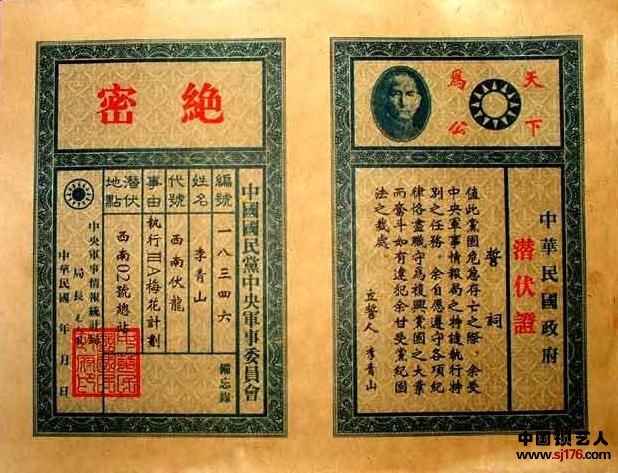 天下
為公
中華民國政府
潛伏證
誓詞
值此黨國危急存亡之際，余受
中央軍事情報局之特遣執行特
別之任務。余自愿遵守各項紀
律恪盡職守為復興黨國之大業
而奮斗如有違犯余甘受黨紀國
法之裁處。
立誓人 李青山
絕密
中國國民黨中央軍事委員會
備忘錄
編號 一八三四六
姓名 李青山
代號 西南伏龍
事由 執行IIIA梅花計劃
潛伏地點 西南02號總社
中央軍事情報統計局
局長
中華民國 年 月 日
中国锁艺人
www.sj176.com